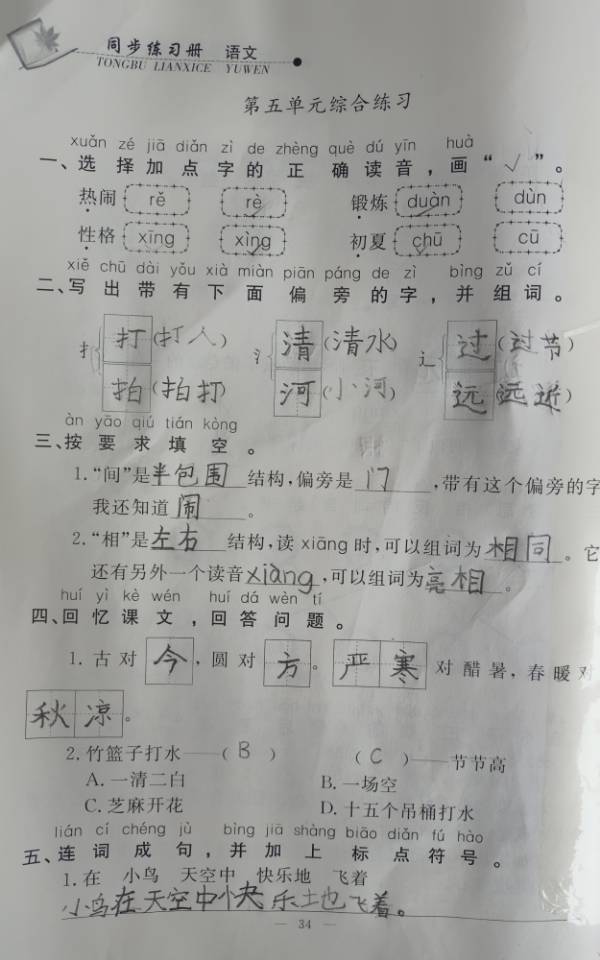 同步练习册 语文
TONGBU LIANXICE YUWEN
第五单元综合练习
xuǎn zé jiā diǎn zì de zhèng què dú yīn huà
一、选择加点字的正确读音，画“√”。
热闹 rě rè 锻炼 duàn dùn
性格 xīng xìng 初夏 chū cū
xiě chū dài yǒu xià miàn piān páng de zì bìng zǔ cí
二、写出带有下面偏旁的字，并组词。
扌 打(打人) 氵 清(清水) 辶 过(过节)
拍(拍打) 河(小河) 远 远近)
àn yāo qiú tián kòng
三、按要求填空。
1.“间”是半包围结构,偏旁是门,带有这个偏旁的字
我还知道闹。
2.“相”是左右结构,读 xiāng 时,可以组词为相同。它
还有另外一个读音xiàng,可以组词为亮相。
huí yì kè wén huí dá wèn tí
四、回忆课文，回答问题。
1. 古对今,圆对方。严寒对酷暑,春暖对
秋凉。
2. 竹篮子打水——( B ) ( C )——节节高
A. 一清二白 B. 一场空
C. 芝麻开花 D. 十五个吊桶打水
lián cí chéng jù bìng jiā shàng biāo diǎn fú hào
五、连词成句，并加上标点符号。
1. 在 小鸟 天空中 快乐地 飞着
小鸟在天空中快乐地飞着。
— 34 —